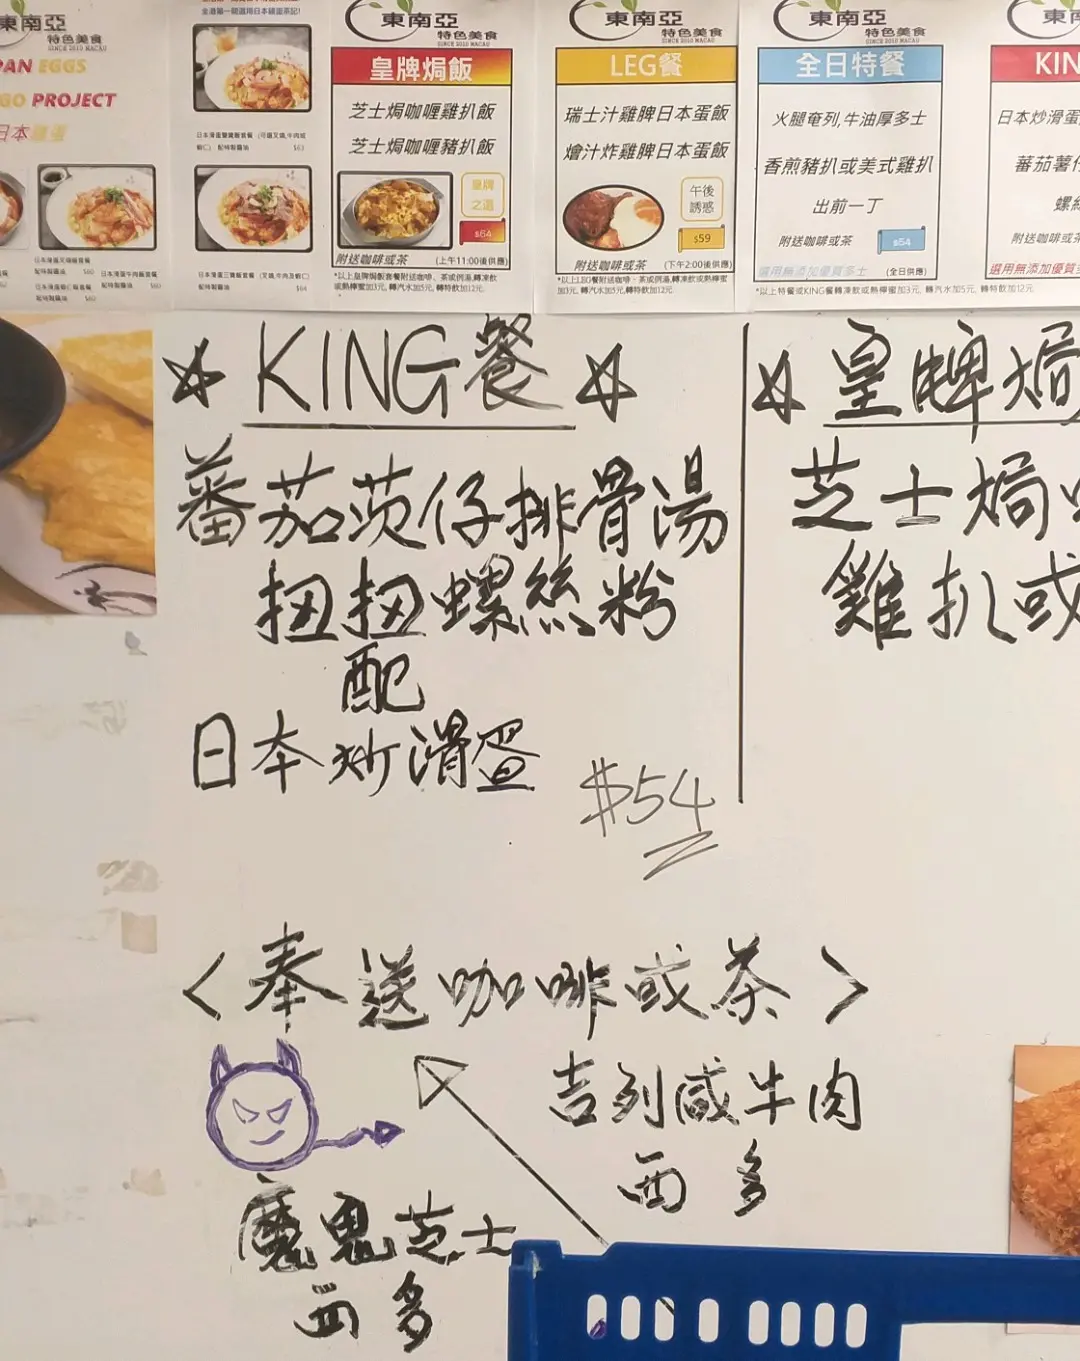 東南亞
特色美食
SINCE 2010 MACAU
PAN EGGS
GO PROJECT
日本雞蛋
日本滑蛋叉燒飯套餐
配味製醬油 $60
日本滑蛋牛肉飯套餐
配味製醬油 $60
日本滑蛋蝦仁飯套餐
配味製醬油 $60
日本滑蛋雙寶飯套餐 (可選叉燒,牛肉或
蝦仁) 配味製醬油 $63
日本滑蛋三寶飯套餐 (叉燒,牛肉及蝦仁)
配味製醬油 $64
東南亞
特色美食
SINCE 2010 MACAU
皇牌焗飯
芝士焗咖喱雞扒飯
芝士焗咖喱豬扒飯
皇牌
之選
$64
附送咖啡或茶
(上午11:00後供應)
*以上皇牌焗飯套餐附送咖啡、茶或例湯,轉凍飲
或熱檸蜜加3元, 轉汽水加5元,轉特飲加12元.
東南亞
特色美食
SINCE 2010 MACAU
LEG餐
瑞士汁雞脾日本蛋飯
燴汁炸雞脾日本蛋飯
午後
誘惑
$59
附送咖啡或茶
(下午2:00後供應)
*以上LEG餐附送咖啡、茶或例湯,轉凍飲或熱檸蜜
加3元, 轉汽水加5元,轉特飲加12元.
東南亞
特色美食
SINCE 2010 MACAU
全日特餐
火腿奄列,牛油厚多士
香煎豬扒或美式雞扒
出前一丁
附送咖啡或茶
$54
選用無添加優質多士
(全日供應)
*以上特餐或KING餐轉凍飲或熱檸蜜加3元, 轉汽水加5元, 轉特飲加12元.
東南
特
KIN
日本炒滑蛋
蕃茄薯仔
螺絲
附送咖啡或茶
選用無添加優質
KING餐
蕃茄茨仔排骨湯
扭扭螺絲粉
配
日本炒滑蛋
$54
皇牌焗
芝士焗
雞扒或
<奉送咖啡或茶>
吉列咸牛肉
西多
魔鬼芝士
西多